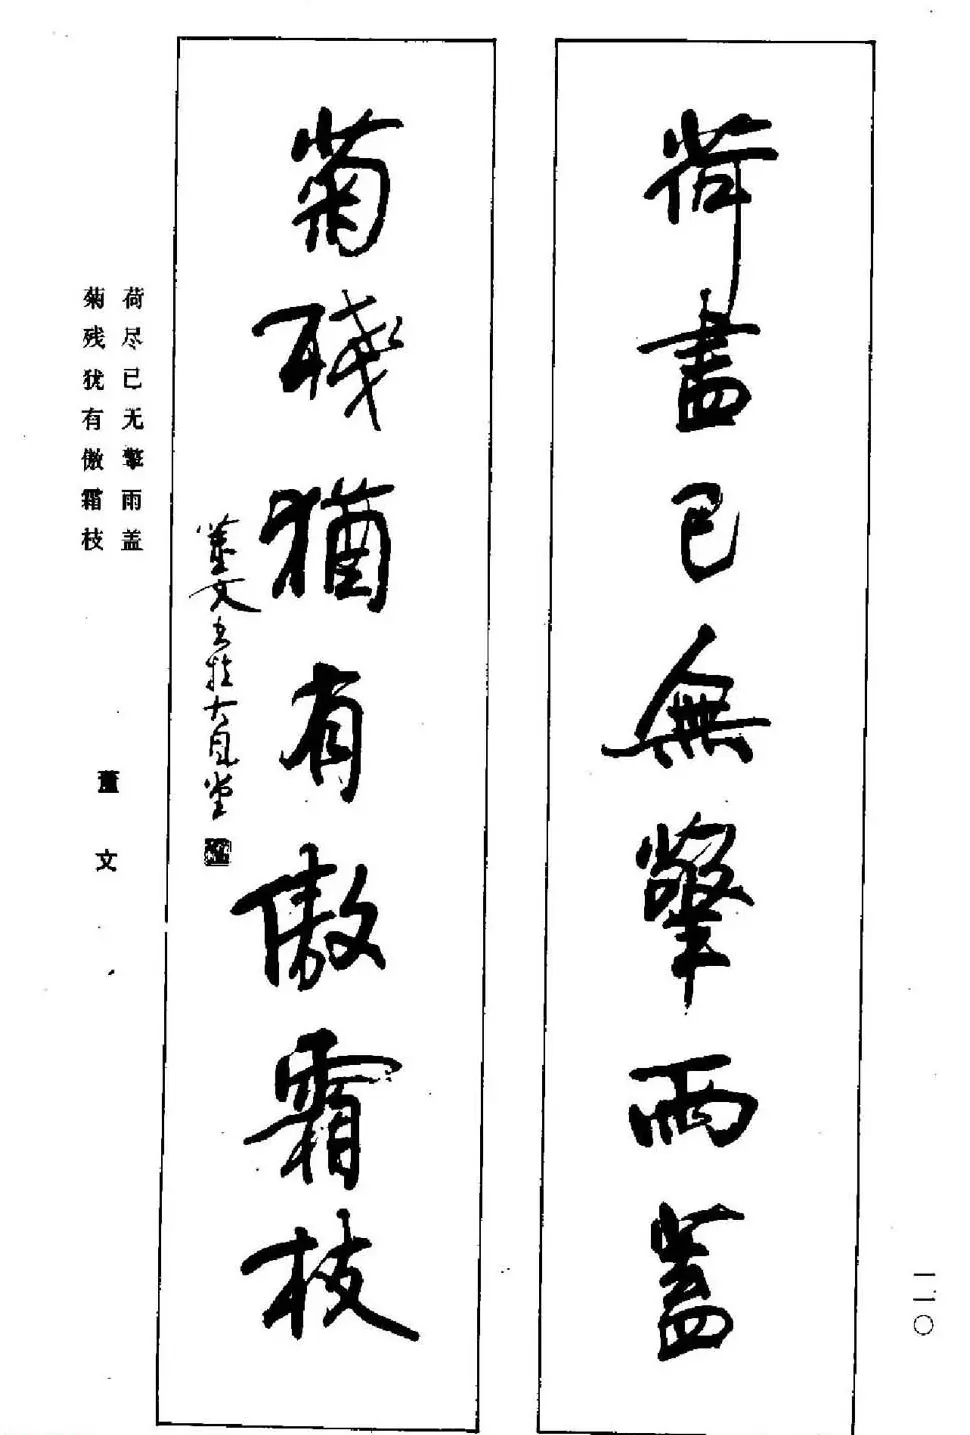 荷盡已無擎雨蓋
菊殘猶有傲霜枝
董文書於大風堂
荷尽已无擎雨盖
菊残犹有傲霜枝
董文
一一〇